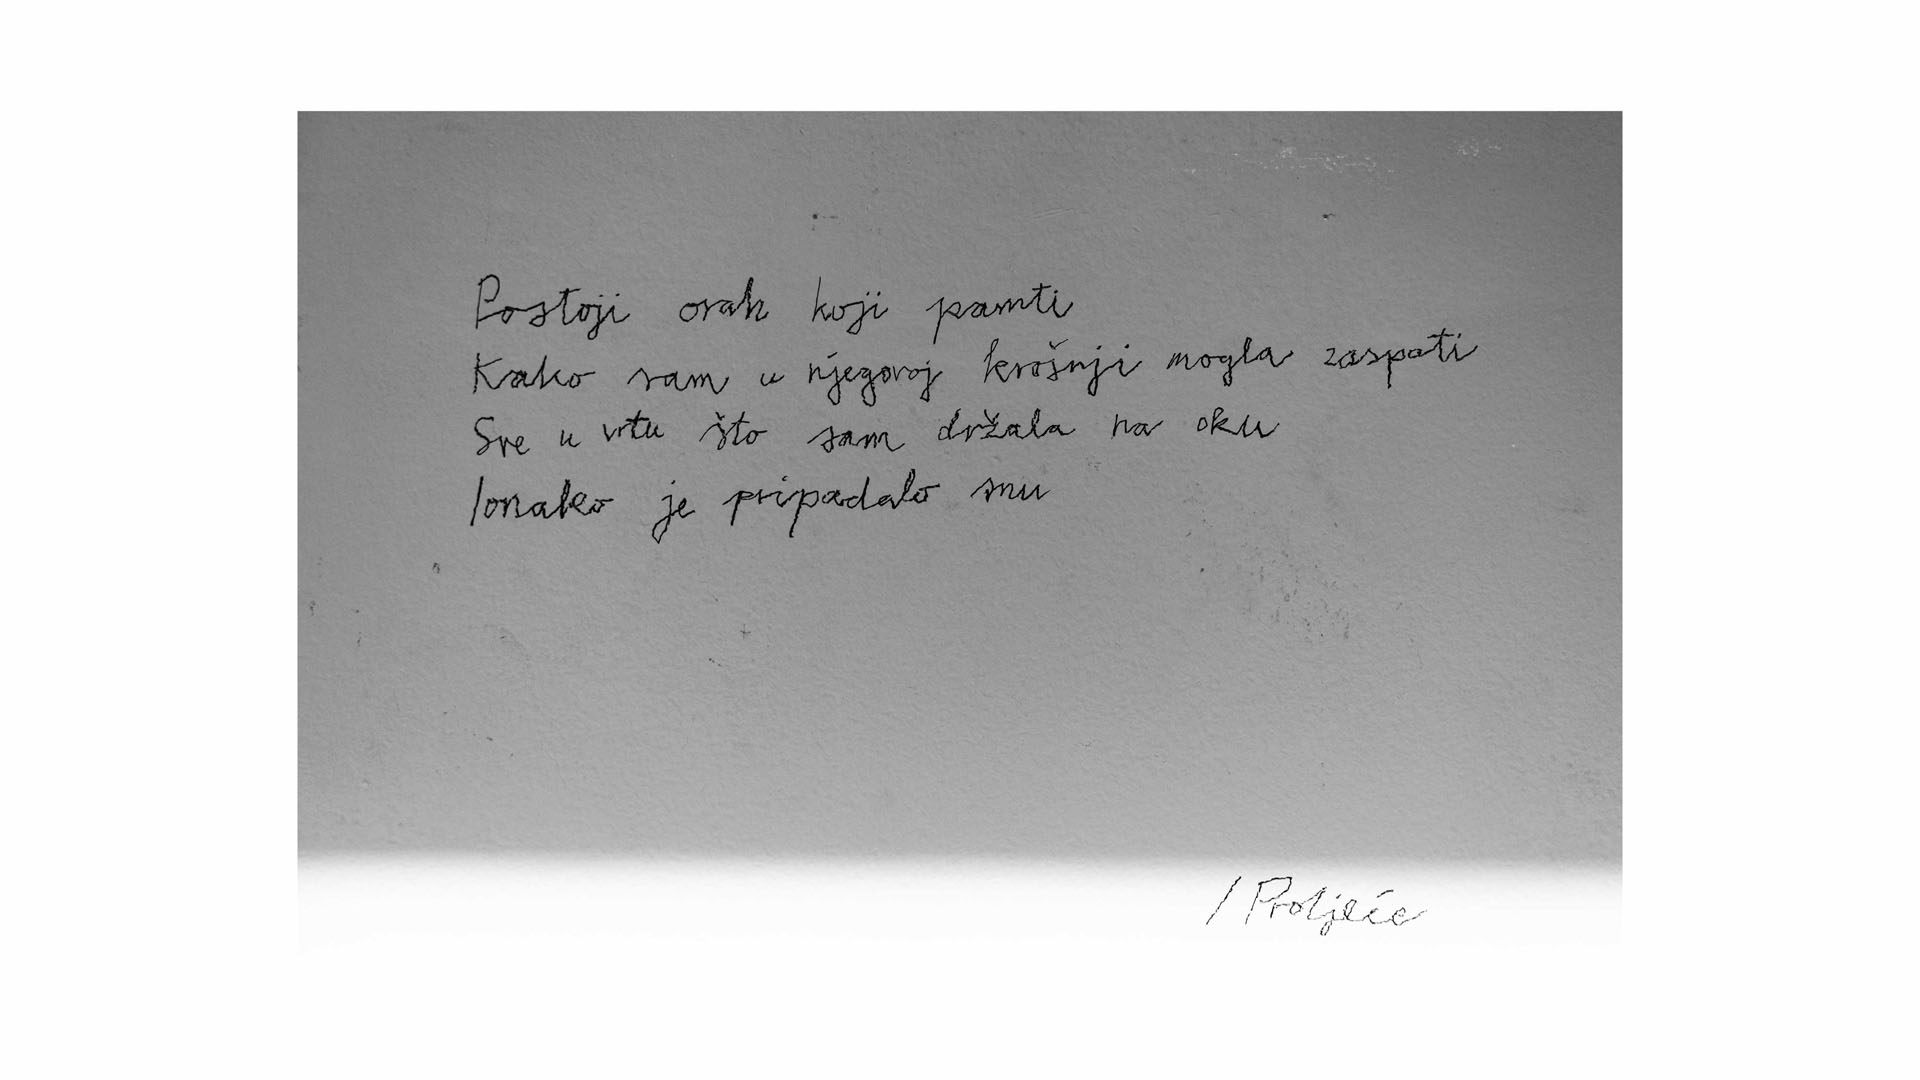 Postoji orah koji pamti
Kako sam u njegovoj krošnji mogla zaspati
Sve u vrtu što sam držala na oku
Ionako je pripadalo snu
/ Proljeće